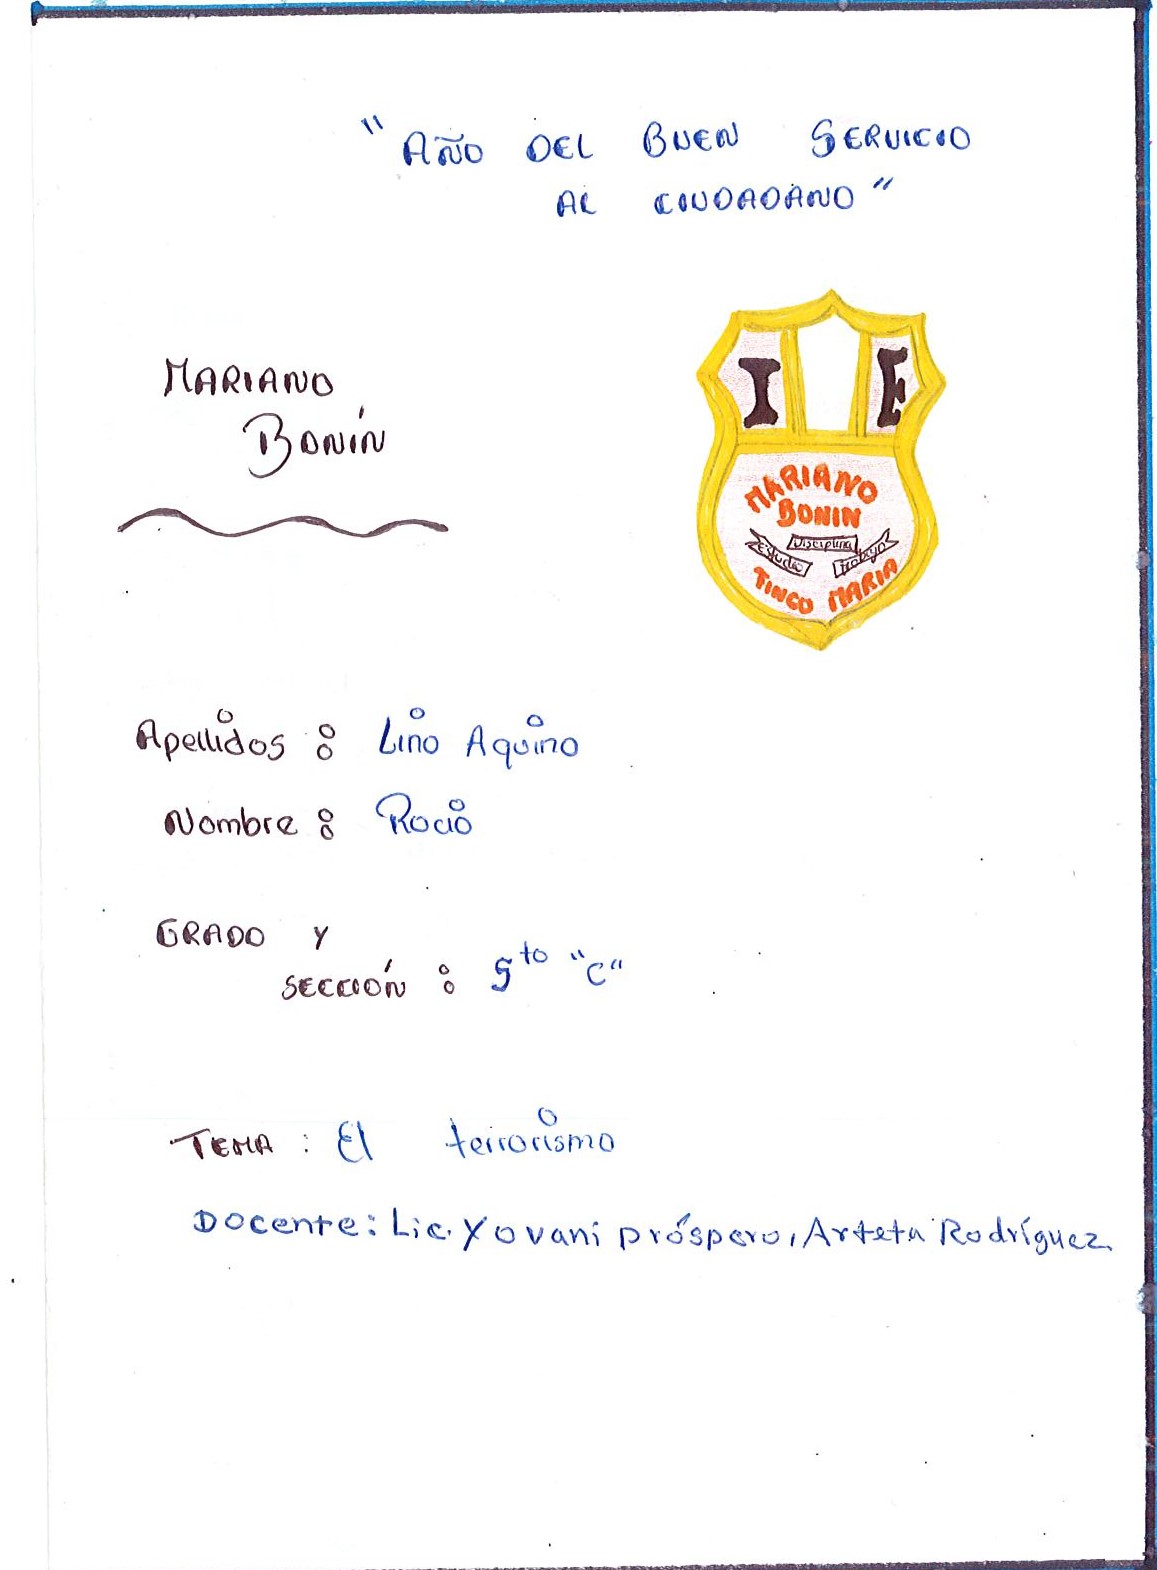 "AÑO DEL BUEN SERVICIO
AL CIUDADANO"
MARIANO
BONÍN
I E
MARIANO
BONIN
Estudio Disciplina trabajo
TINGO MARIA
Apellidos : Lino Aquino
Nombre : Rocio
GRADO Y
SECCIÓN : 5to "C"
TEMA : El terrorismo
Docente: Lic. Yovani próspero, Arteta Rodríguez